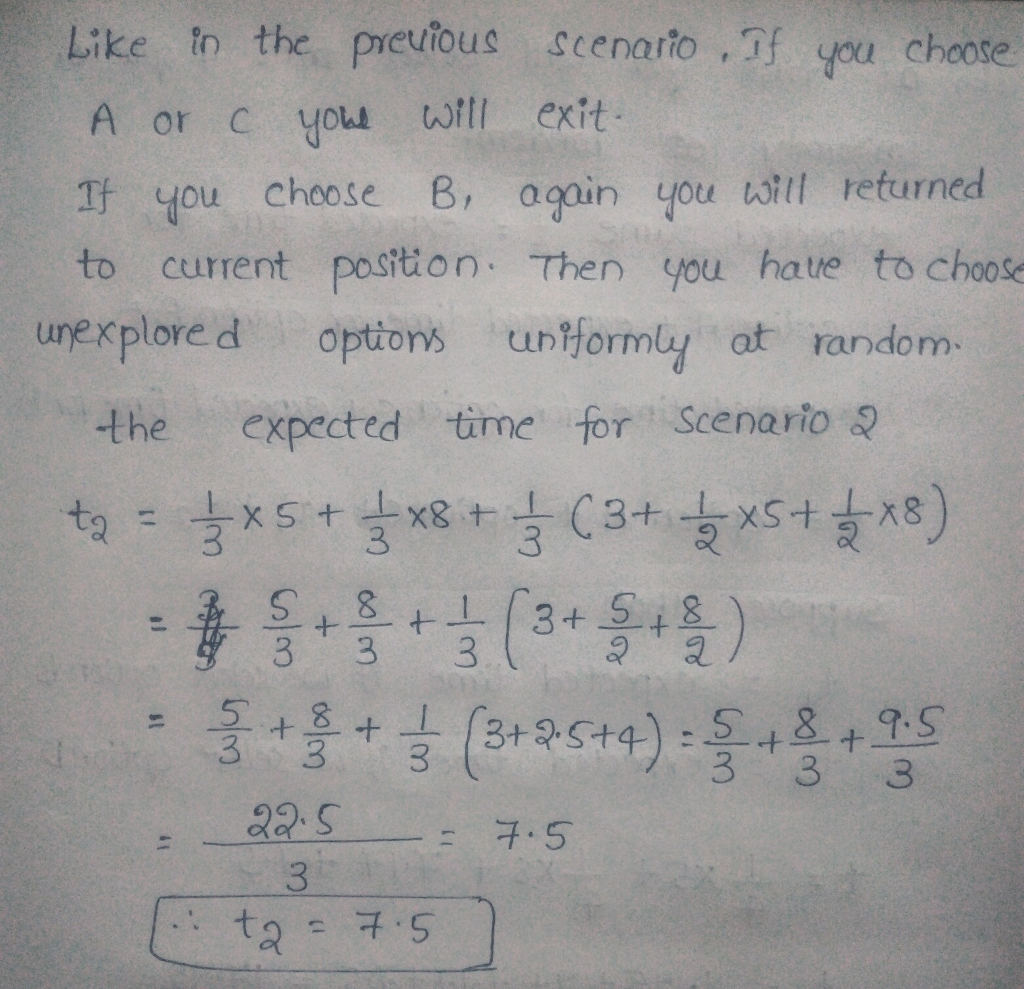 Like in the previous scenario, If you choose
A or C you will exit.
If you choose B, again you will returned
to current position. Then you have to choose
unexplored options uniformly at random.
the expected time for scenario 2
t₂ = 1/3 × 5 + 1/3 × 8 + 1/3 (3 + 1/2 × 5 + 1/2 × 8)
= 5/3 + 8/3 + 1/3 (3 + 5/2 + 8/2)
= 5/3 + 8/3 + 1/3 (3+2.5+4) = 5/3 + 8/3 + 9.5/3
= 22.5/3 = 7.5
∴ t₂ = 7.5